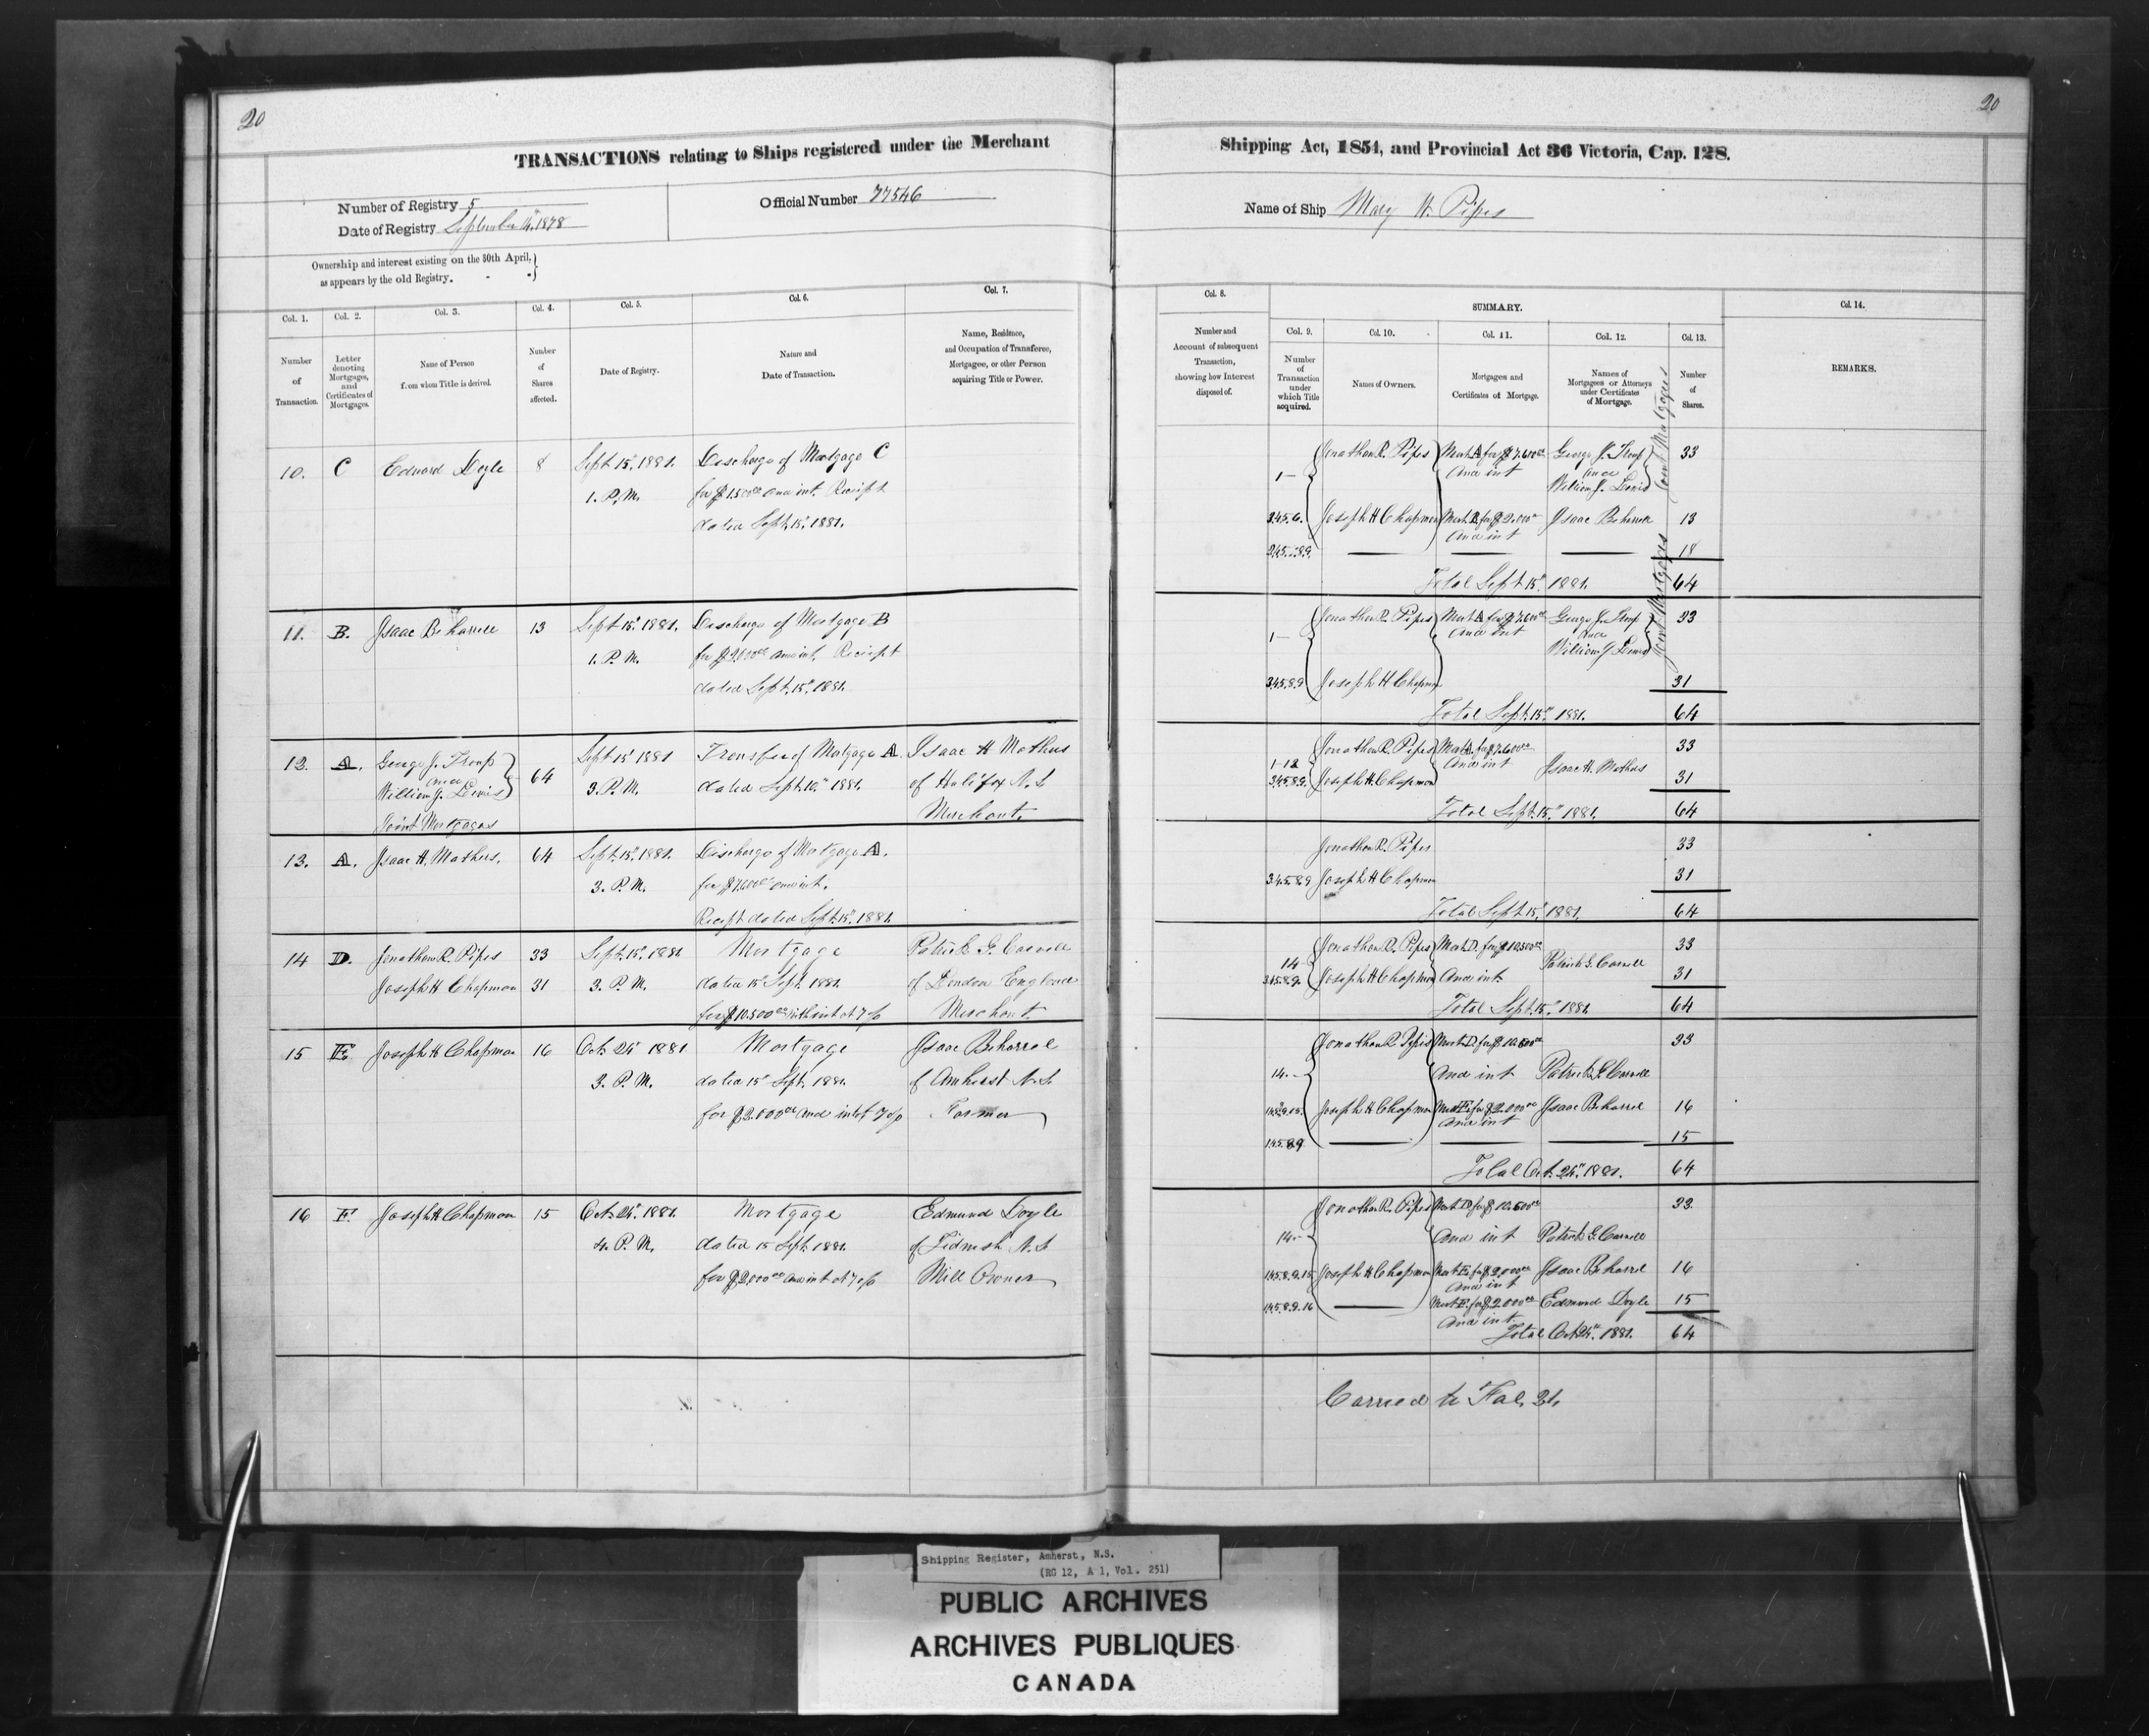 20
20
TRANSACTIONS relating to Ships registered under the Merchant
Shipping Act, 1854, and Provincial Act 36 Victoria, Cap. 128.
Number of Registry 5
Date of Registry September 14, 1878
Official Number 77546
Name of Ship Mary H. Pipes
Ownership and interest existing on the 30th April,
as appears by the old Registry.
Col. 1. Col. 2. Col. 3. Col. 4. Col. 5. Col. 6. Col. 7.
Number of Transaction.
Letter denoting Mortgages, and Certificates of Mortgages.
Name of Person from whom Title is derived.
Number of Shares affected.
Date of Registry.
Nature and Date of Transaction.
Name, Residence, and Occupation of Transferee, Mortgagee, or other Person acquiring Title or Power.
Col. 8.
Number and Account of subsequent Transaction, showing how Interest disposed of.
SUMMARY.
Col. 9. Col. 10. Col. 11. Col. 12. Col. 13. Col. 14.
Number of Transaction under which Title acquired.
Names of Owners.
Mortgages and Certificates of Mortgage.
Names of Mortgagees or Attorneys under Certificates of Mortgage.
Number of Shares.
REMARKS.
10. C Edward Doyle 8 Sept 15" 1881. Discharge of Mortgage C
1. P.M. for $1500 00 and int. Reciept
dated Sept. 15" 1881.
1 Jonathan R. Pipes Mort A for $7.600 00 George J. Troop 33
And int and
William J. Lewis
Joint Mortgages
3.4.5.6. Joseph H Chapman Mort B. for $2.000 00 Isaac Beharrell 13
And int
18
Total Sept 15" 1881. 64
11. B. Isaac Beharrell 13 Sept 15" 1881. Discharge of Mortgage B
1. P.M. for $2000 00 and int. Reciept
dated Sept. 15" 1881.
1 Jonathan R. Pipes Mort A for $7.600 00 George J. Troop 33
And int and
William J. Lewis
Joint Mortgages
3.4.5.8.9 Joseph H Chapman 31
Total Sept. 15" 1881. 64
12. A. George J. Troop 64 Sept 15" 1881 Transfer of Mortgage A. Isaac H Mathers
and 3. P.M. dated Sept. 10" 1881. of Halifax N.S
William J. Lewis Merchant.
Joint Mortgages
1-12 Jonathan R. Pipes Mort A. for $7.600 00 33
And int Isaac H. Mathers
3.4.5.8.9. Joseph H. Chapman 31
Total Sept. 15" 1881. 64
13. A. Isaac H. Mathers. 64 Sept. 15" 1881. Discharge of Mortgage A.
3. P.M. for $7600 00 and int.
Reciept dated Sept. 15" 1881.
Jonathan R. Pipes 33
3.4.5.8.9 Joseph H Chapman 31
Total Sept 15" 1881. 64
14 D. Jonathan R. Pipes 33 Sept. 15" 1881 Mortgage Patrick G. Carvell
Joseph H Chapman 31 3. P.M. dated 15" Sept. 1881. of London England
for $10.500 00 with int at 7 o/o Merchant.
14 Jonathan R. Pipes Mort D. for $10500 00 33
3.4.5.8.9. Joseph H Chapman And int. Patrick G. Carvell 31
Total Sept. 15" 1881. 64
15 E Joseph H Chapman 16 Oct. 24" 1881 Mortgage Isaac Beharrel
3. P.M. dated 15" Sept. 1881. of Amherst N.S
for $2.000 00 and int at 7 o/o Farmer
14. Jonathan R Pipes Mort D. for $10.500 00 33
And int Patrick G. Carvell
Joseph H Chapman Mort E for $2.000 00 Isaac Beharrel 16
And int
15
Total Oct. 24" 1881. 64
16 F. Joseph H Chapman 15 Oct. 24" 1881. Mortgage Edmund Doyle
4. P.M. dated 15 Sept. 1881. of Tidnish N.S
for $2.000 00 and int at 7 o/o Mill Owner
14 Jonathan R. Pipes Mort D for $10.500 00 33.
And int Patrick G. Carvell
Joseph H Chapman Mort E. for $2.000 00 Isaac Beharrel 16
And int
Mort F. for $2.000 00 Edmund Doyle 15
And int
Total Oct 24" 1881. 64
Carried to Fol. 21.
Shipping Register, Amherst, N.S.
(RG 12, A 1, Vol. 251)
PUBLIC ARCHIVES
ARCHIVES PUBLIQUES
CANADA